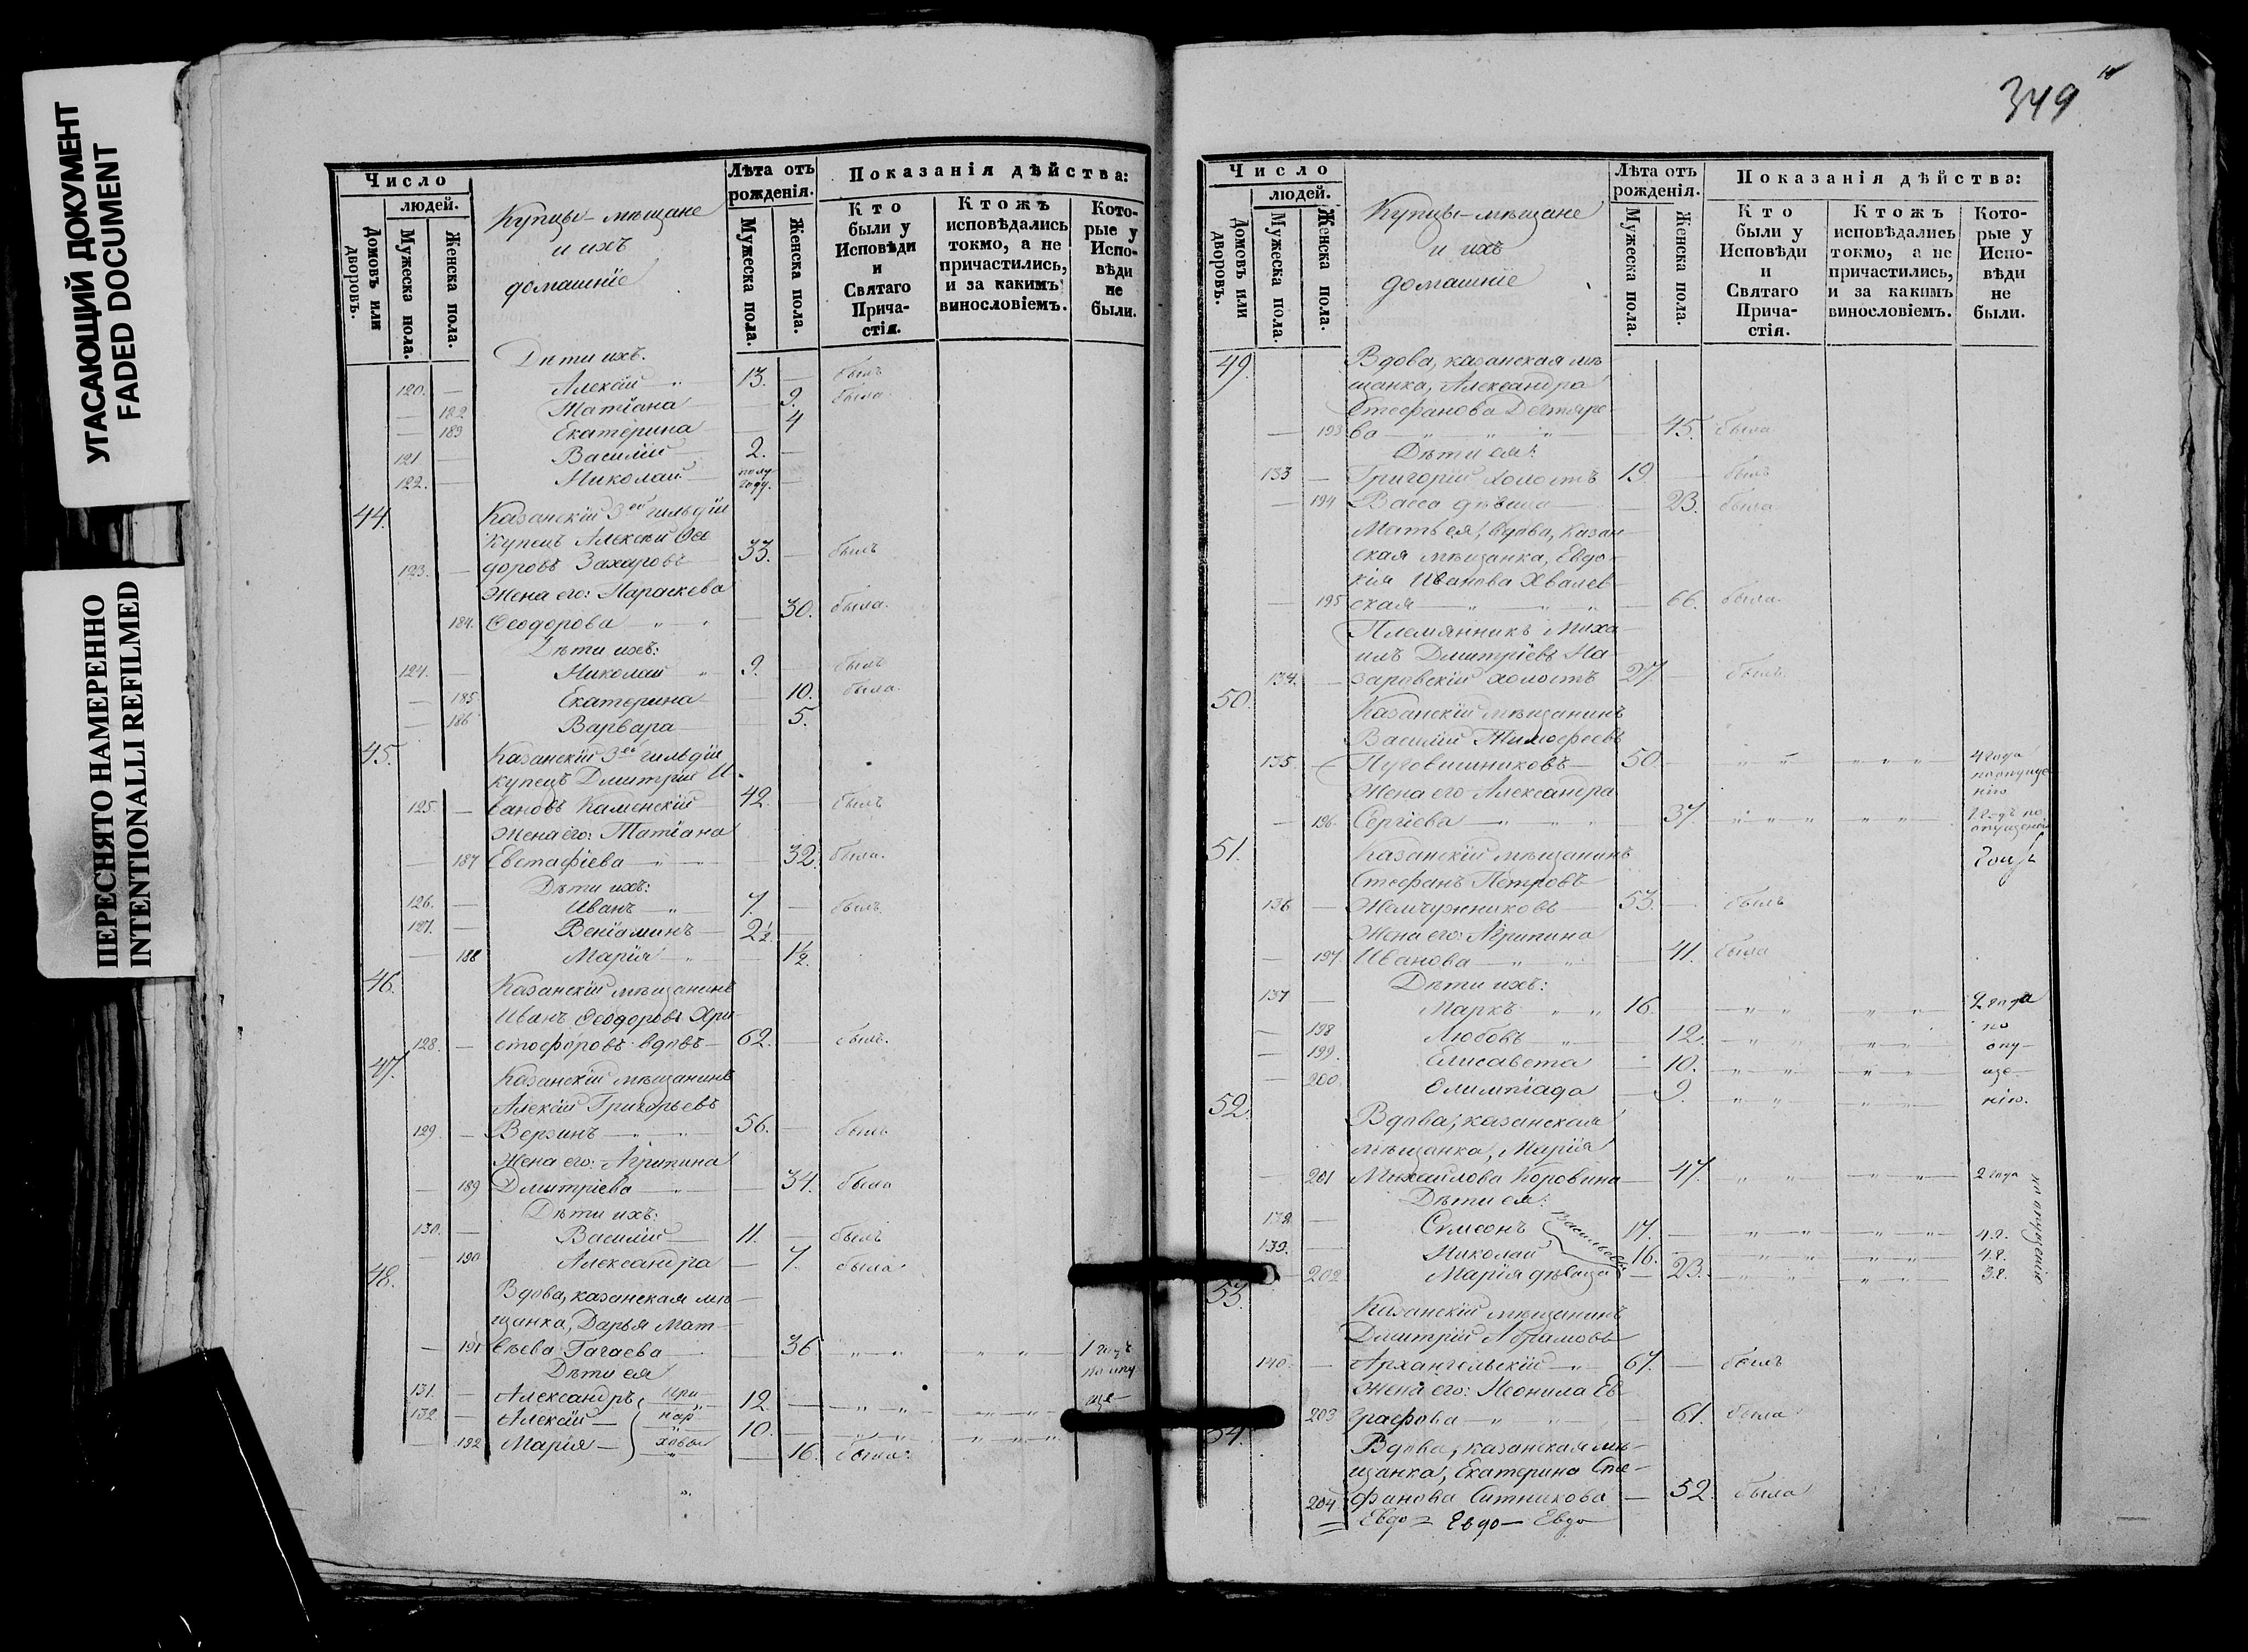 УГАСАЮЩИЙ ДОКУМЕНТ
FADED DOCUMENT
ПЕРЕСНЯТО НАМЕРЕННО
INTENTIONALLI REFILMED
Число
людей.
Домовъ или дворовъ.
Мужеска пола.
Женска пола.
Купцы-мѣщане
и ихъ
домашніе
Лѣта отъ рожденія.
Мужеска пола.
Женска пола.
Показанія дѣйства:
Кто были у Исповѣди и Святаго Прича-стія.
Ктожъ исповѣдались токмо, а не причастились, и за какимъ винословіемъ.
Кото-рые у Испо-вѣди не были.
Дѣти ихъ.
120. — Алексій " 13. — былъ
— 182 Татіана — 9. была.
— 183 Екатерина — 4
121 — Василій 2. —
122. — Николай полу-году. —
44. Казанскій 3ей гильдіи
купецъ Алексѣй Ѳео
123. — доровъ Захаровъ 33. — былъ
Жена его: Параскева
184. Ѳеодорова — " — 30. была.
Дѣти ихъ:
124. — Николай " 9. — былъ
— 185 Екатерина — 10. была.
— 186 Варвара — 5.
45. Казанскій 3ей гильдіи
купецъ Дмитрій И-
125 — вановъ Каменскій 42. — былъ
Жена его: Татіана
— 187 Евстафіева — " — 32. была.
Дѣти ихъ:
126. — Иванъ — " 7. — былъ
127. — Веніаминъ — 2½. —
— 188 Марія — " — 1½.
46. Казанскій мѣщанинъ
Иванъ Ѳеодоровъ Хри-
128. — стофоровъ вдовъ — 62. — былъ.
47. Казанскій мѣщанинъ
Алексій Григорьевъ
129. — Верзинъ — " — 56. — былъ
Жена его: Агрипина
— 189 Дмитріева — " — 34. была
Дѣти ихъ:
130. — Василій 11. — былъ
— 190 Александра — 7. была
48. Вдова, казанская мѣ-
щанка, Дарья Мат-
— 191 вѣева Гагаева — 36 — " — " " " 1 годъ
Дѣти ея по опу
131. — Александръ 12. — " " " " ще-
132. — Алексій 10. — " " " "
— 192 Марія — — 16. была
349
Число
людей.
Домовъ или дворовъ.
Мужеска пола.
Женска пола.
Купцы-мѣщане
и ихъ
домашніе
Лѣта отъ рожденія.
Мужеска пола.
Женска пола.
Показанія дѣйства:
Кто были у Исповѣди и Святаго Прича-стія.
Ктожъ исповѣдались токмо, а не причастились, и за какимъ винословіемъ.
Кото-рые у Испо-вѣди не были.
49. Вдова, казанская мѣ
щанка, Александра
Стефанова Дегтяре-
— 193 ва — " " " — 45. была
Дѣти ея:
133 — Григорій холостъ 19. — былъ
— 194 Васса дѣвица — 23. была
Мать ея, вдова, казан-
ская мѣщанка, Евдо-
кія Иванова Хвалев-
— 195 ская — " " " — 66. была.
Племянникъ Миха-
илъ Дмитріевъ На-
134. — заровскій холостъ 27 — былъ.
50. Казанскій мѣщанинъ
Василій Тимофеевъ
135. — Пуговишниковъ — 50. — " " " " " 4 года
по опуще-
Жена его Александра нію
— 196 Сергіева — " " " — 37 " " " " " 1 годъ по
опущенію
51. Казанскій мѣщанинъ
Стефанъ Петровъ
136 — Жемчужниковъ — 53. — былъ
Жена его: Агрипина
— 197 Иванова — " " — 41. была
Дѣти ихъ:
137 — Маркъ " " 16. — " " " " 2 года
— 198 Любовь " — 12. — " " " " по
— 199. Елисавета — 10. — " " " " опу-
— 200. Олимпіада — 9. " " " " ще-
52. Вдова, казанская нію.
мѣщанка, Марія
— 201 Михайлова Коровина — 47. " " " " 2 года
Дѣти ея: по опущенію
138. — Симеонъ Васильевы 17. — " " " " 4.г.
139. — Николай 16. — " " " " 4.г.
— 202 Марія дѣвица — 23. — " " " " 3.г.
53. Казанскій мѣщанинъ
Дмитрій Абрамовъ
140. — Архангельскій " 67. — былъ
Жена его: Неонила Ев-
203 графова — " " — 61. была
54. Вдова, казанская мѣ-
щанка, Екатерина Сте-
204 фанова Ситникова — 52. была
Евдо — Евдо — Евдо